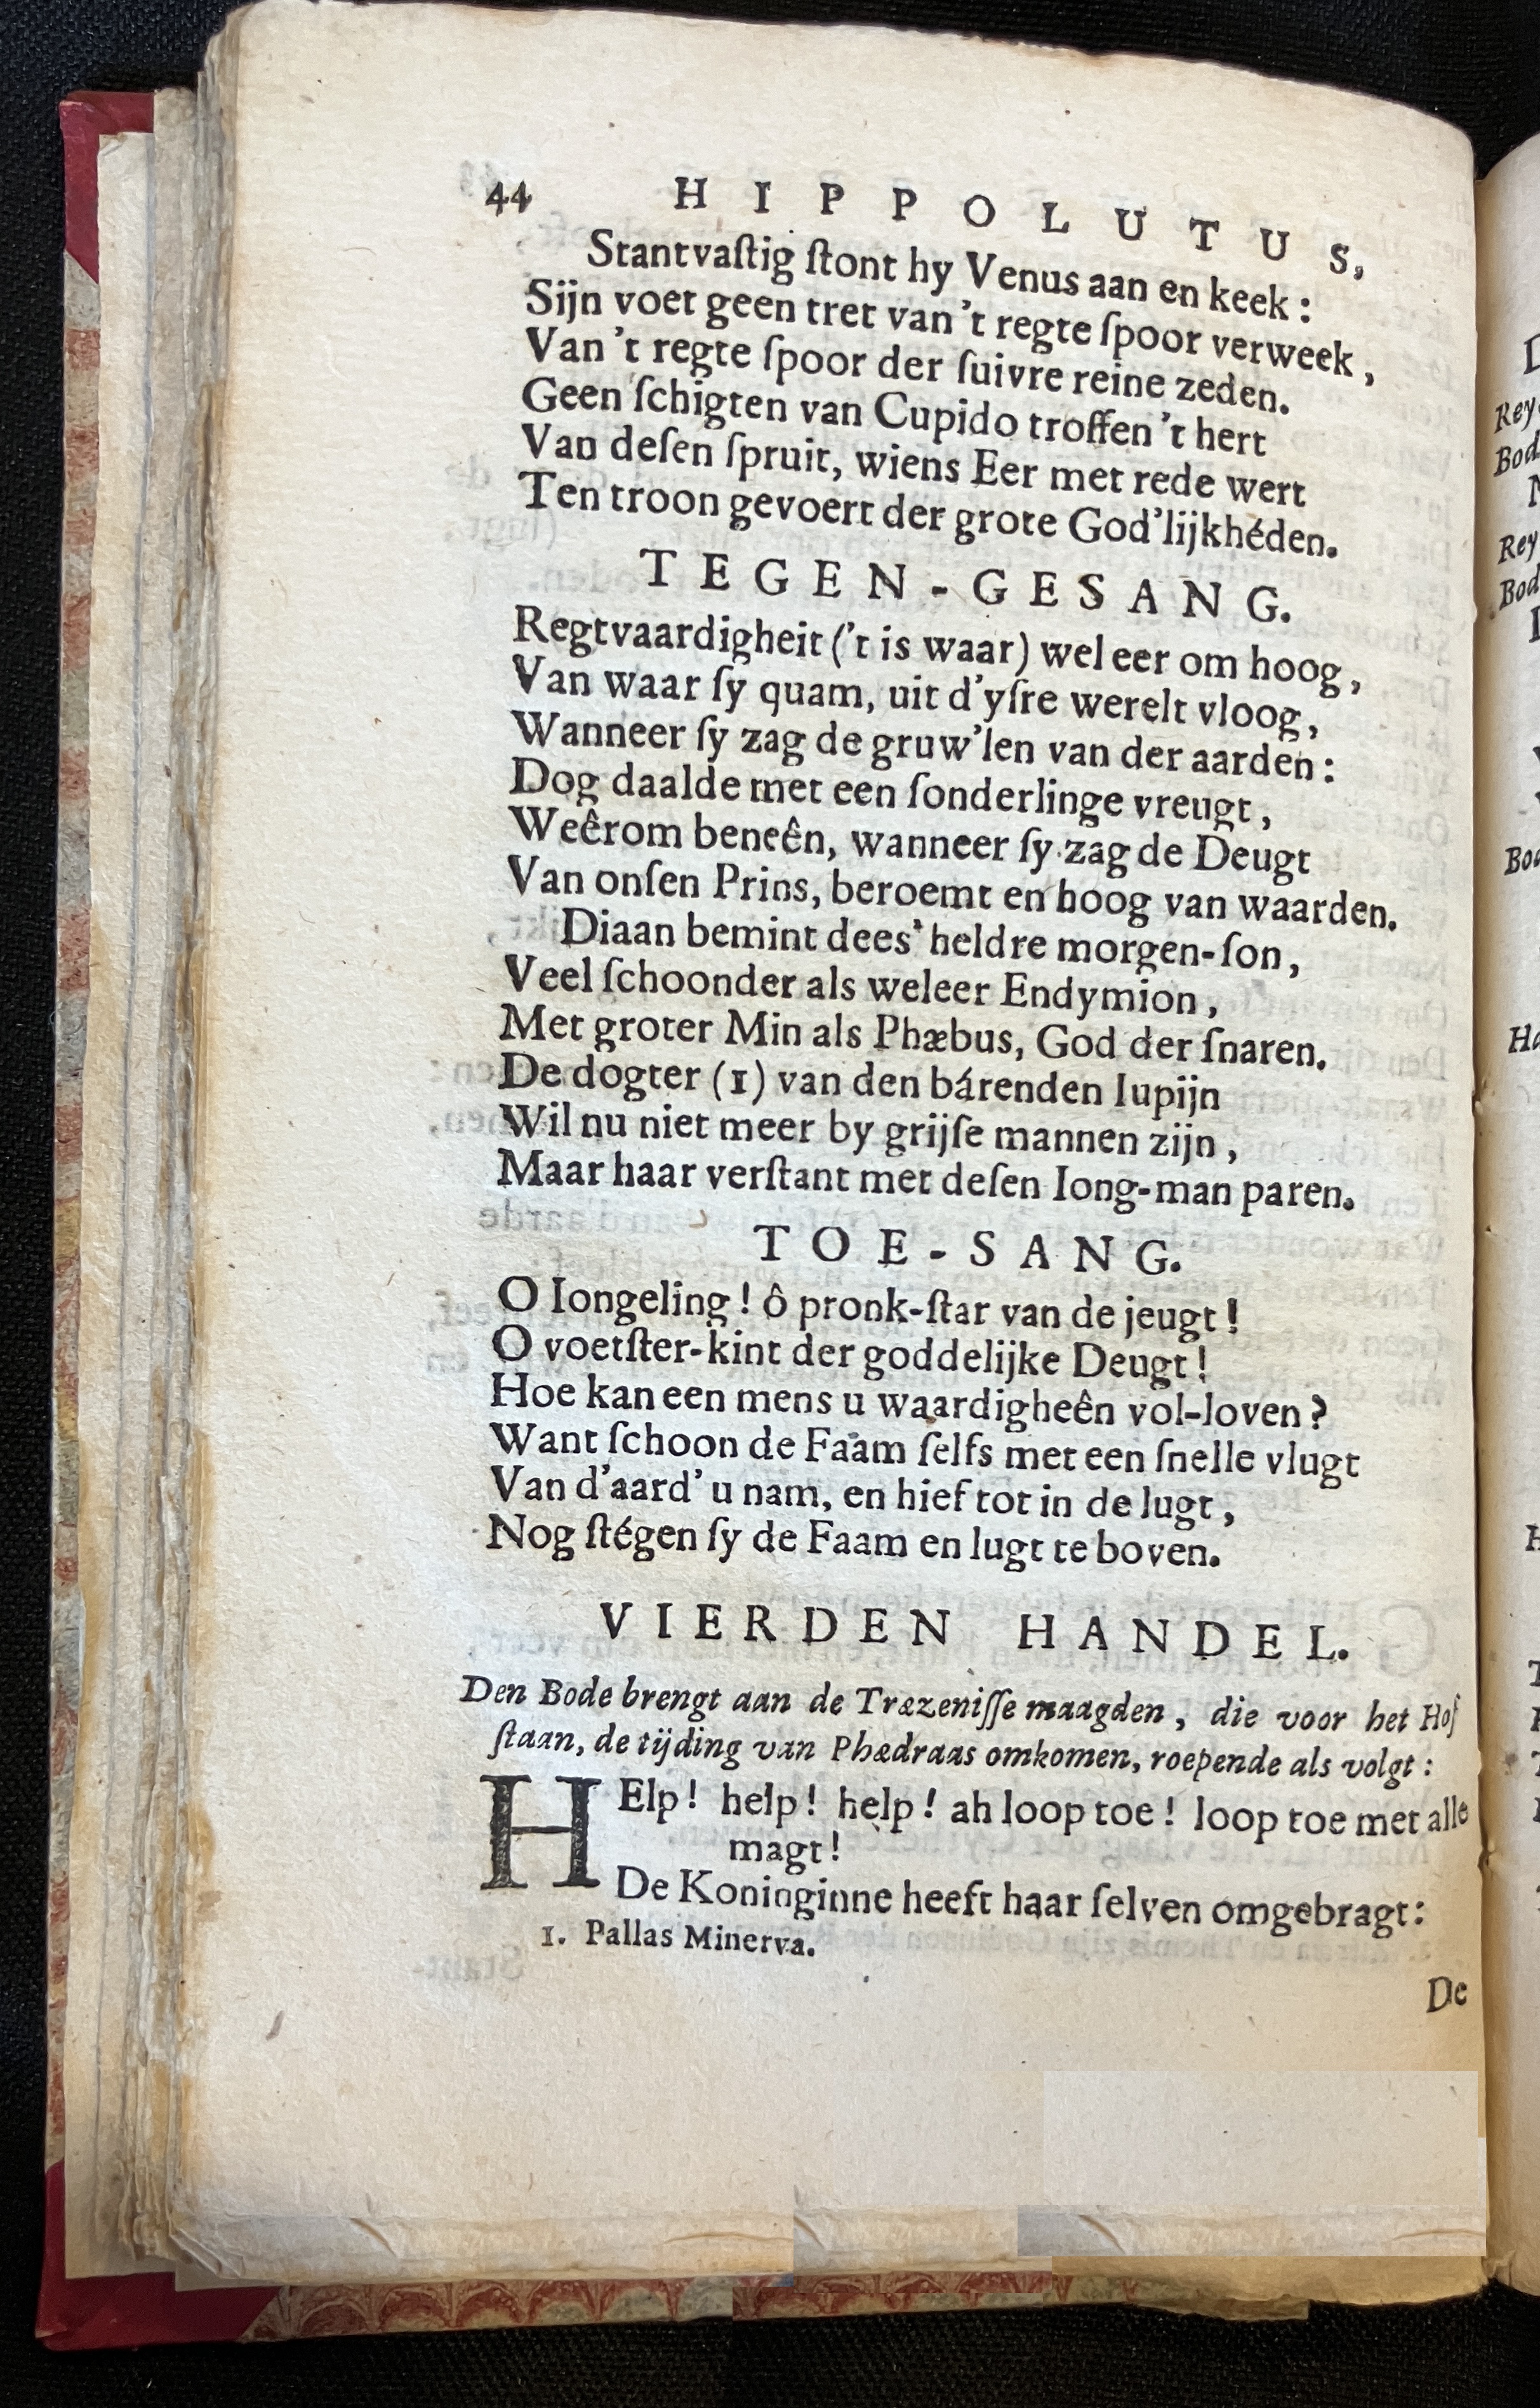 44 HIPPOLUTUS,
Stantvaſtig ſtont hy Venus aan en keek :
Sijn voet geen tret van 't regte ſpoor verweek ,
Van 't regte ſpoor der ſuivre reine zeden.
Geen ſchigten van Cupido troffen 't hert
Van deſen ſpruit, wiens Eer met rede wert
Ten troon gevoert der grote God'lijkhéden.
TEGEN-GESANG.
Regtvaardigheit ('t is waar) wel eer om hoog ,
Van waar ſy quam, uit d'yſre werelt vloog,
Wanneer ſy zag de gruw'len van der aarden :
Dog daalde met een ſonderlinge vreugt ,
Weêrom beneên, wanneer ſy zag de Deugt
Van onſen Prins, beroemt en hoog van waarden.
Diaan bemint dees' heldre morgen-ſon ,
Veel ſchoonder als weleer Endymion ,
Met groter Min als Phæbus, God der ſnaren.
De dogter (1) van den bárenden Iupijn
Wil nu niet meer by grijſe mannen zijn ,
Maar haar verſtant met deſen Iong-man paren.
TOE-SANG.
O Iongeling ! ô pronk-ſtar van de jeugt !
O voetſter-kint der goddelijke Deugt !
Hoe kan een mens u waardigheên vol-loven ?
Want ſchoon de Faam ſelfs met een ſnelle vlugt
Van d'aard' u nam, en hief tot in de lugt ,
Nog ſtégen ſy de Faam en lugt te boven.
VIERDEN HANDEL.
Den Bode brengt aan de Træzeniſſe maagden , die voor het Hof
ſtaan, de tijding van Phædraas omkomen, roepende als volgt :
HElp ! help ! help ! ah loop toe ! loop toe met alle
magt !
De Koninginne heeft haar ſelven omgebragt :
1. Pallas Minerva.
De